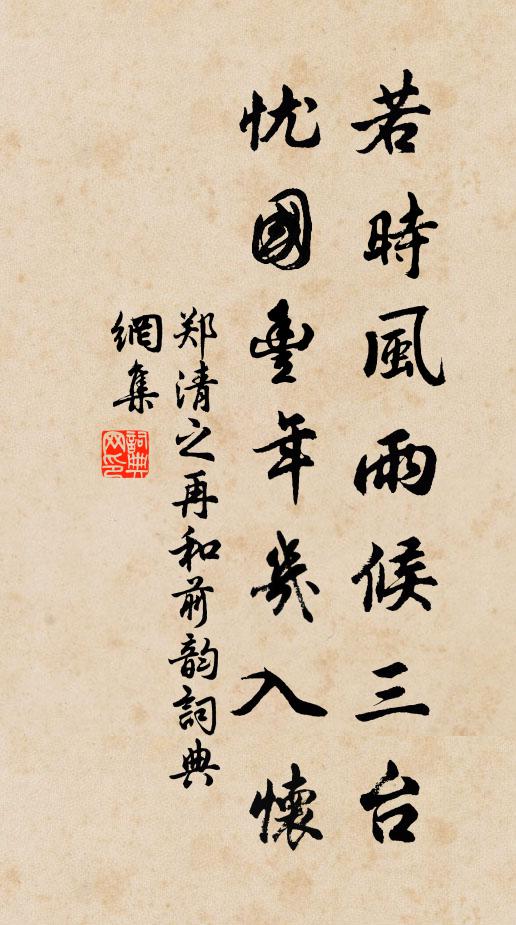 若時風雨候三台
忧國豊年幾入懷
郑清之再和前韵詞典
網集
詞典网印